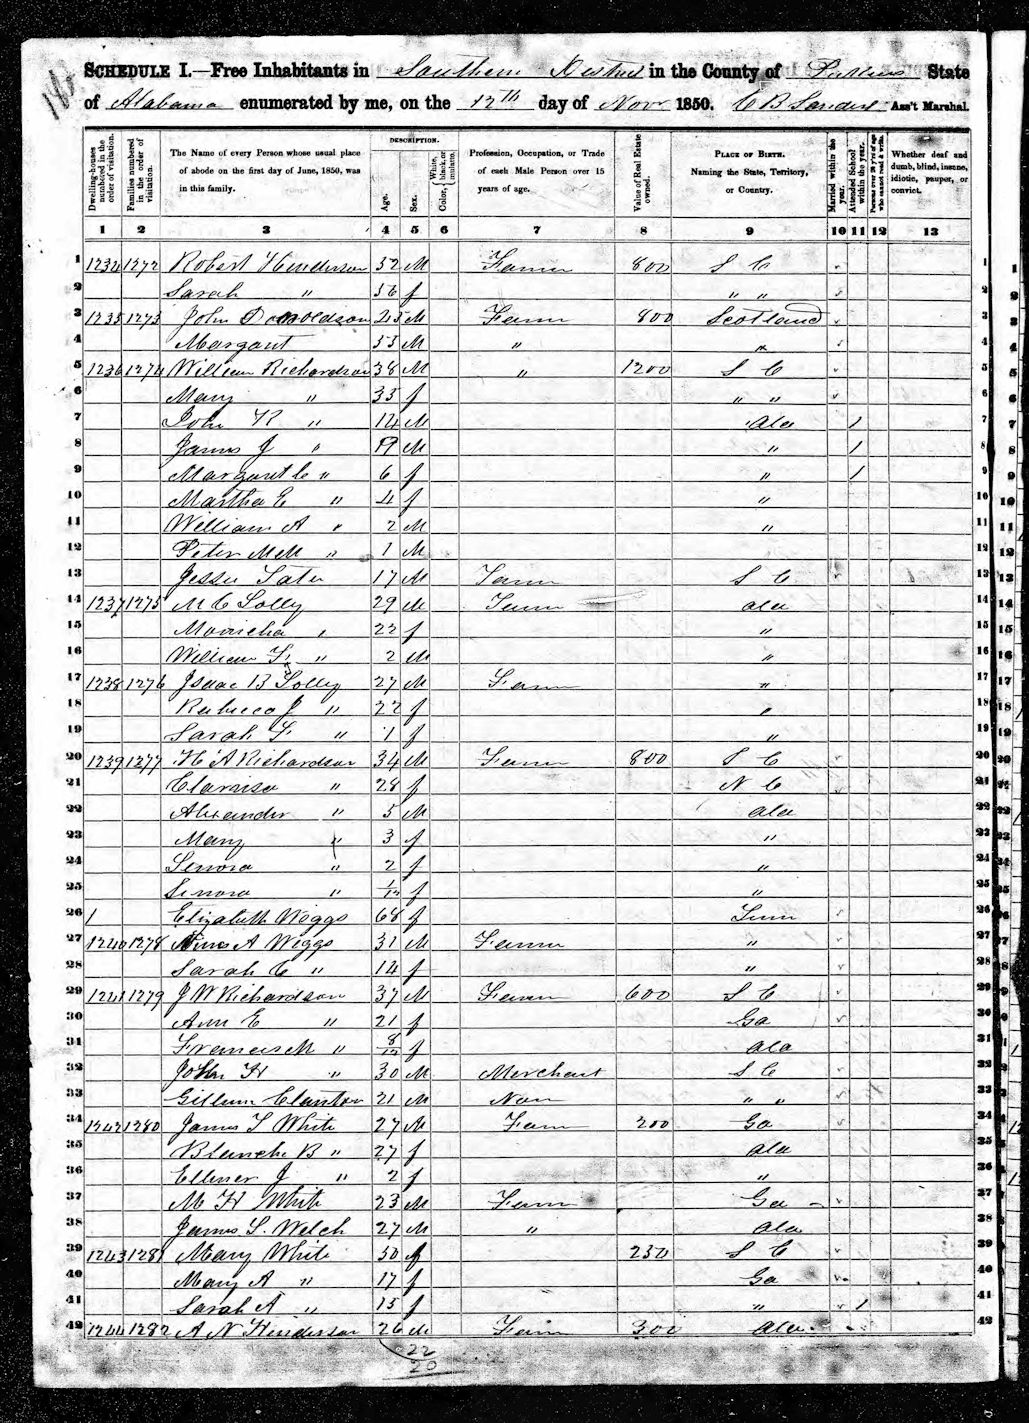 SCHEDULE I.—Free Inhabitants in Southern District in the County of State
of Alabama enumerated by me, on the 12th day of Nov 1850. C B Sanders Ass't Marshal.
Dwelling-houses numbered in the order of visitation.
Families numbered in the order of visitation.
The Name of every Person whose usual place of abode on the first day of June, 1850, was in this family.
DESCRIPTION.
Age.
Sex.
Color, White, black, or mulatto.
Profession, Occupation, or Trade of each Male Person over 15 years of age.
Value of Real Estate owned.
PLACE OF BIRTH. Naming the State, Territory, or Country.
Married within the year.
Attended School within the year.
Persons over 20 y'rs of age who cannot read & write.
Whether deaf and dumb, blind, insane, idiotic, pauper, or convict.
1 2 3 4 5 6 7 8 9 10 11 12 13
1 1234 1272 Robert Henderson 52 M Farmer 800 S C 1
2 Sarah " 56 f " " 2
3 1235 1273 John Donoldson M Farm 800 Scotland 3
4 Margaret 53 M " " 4
5 1236 1274 William Richardson 38 M " 1200 S C 5
6 Mary " 33 f " " 6
7 John R " 14 M Ala 1 7
8 James J " M " 1 8
9 Margaret C " 6 f " 1 9
10 Martha E " 4 f " 10
11 William A " 2 M " 11
12 Peter McM " 1 M 12
13 Jesse Tate 17 M Farm S C 13
14 1237 1275 M C Solly 29 M Farm Ala 14
15 " 22 f " 15
16 William F " 2 M " 16
17 1238 1276 Isaac B Solley 27 M Farm " 17
18 Rebecca J " 22 f " 18
19 Sarah F " 1 f " 19
20 1239 1277 H A Richardson 34 M Farmer 800 S C 20
21 Clarrisa " 28 f N C 21
22 Alexander " 5 M Ala 22
23 Mary " 3 f " 23
24 Senora " 2 f " 24
25 Senora " 1/12 f " 25
26 1 Elizabeth Wiggs 68 f Tenn 26
27 1240 1278 A Wiggs 31 M Farmer " 27
28 Sarah C " 14 f " 28
29 1241 1279 J W Richardson 37 M Farmer 600 S C 29
30 Ann E " 21 f Ga 30
31 Francis M " 8/12 f Ala 31
32 John H " 30 M Merchant S C 32
33 Gillum Clanton 21 M Non " " 33
34 1242 1280 James T White 27 M Farm 200 Ga 34
35 Blanche B " 27 f Ala 35
36 Ellener J " 2 f " 36
37 M H White 23 M Farm Ga 37
38 James S. Welch 27 M " Ala 38
39 1243 1281 Mary White 50 f 250 S C 39
40 Mary A " 17 f Ga 40
41 Sarah A " 15 f " 1 41
42 1244 1282 A N Henderson 26 M Farm 300 Ala 42
22
20